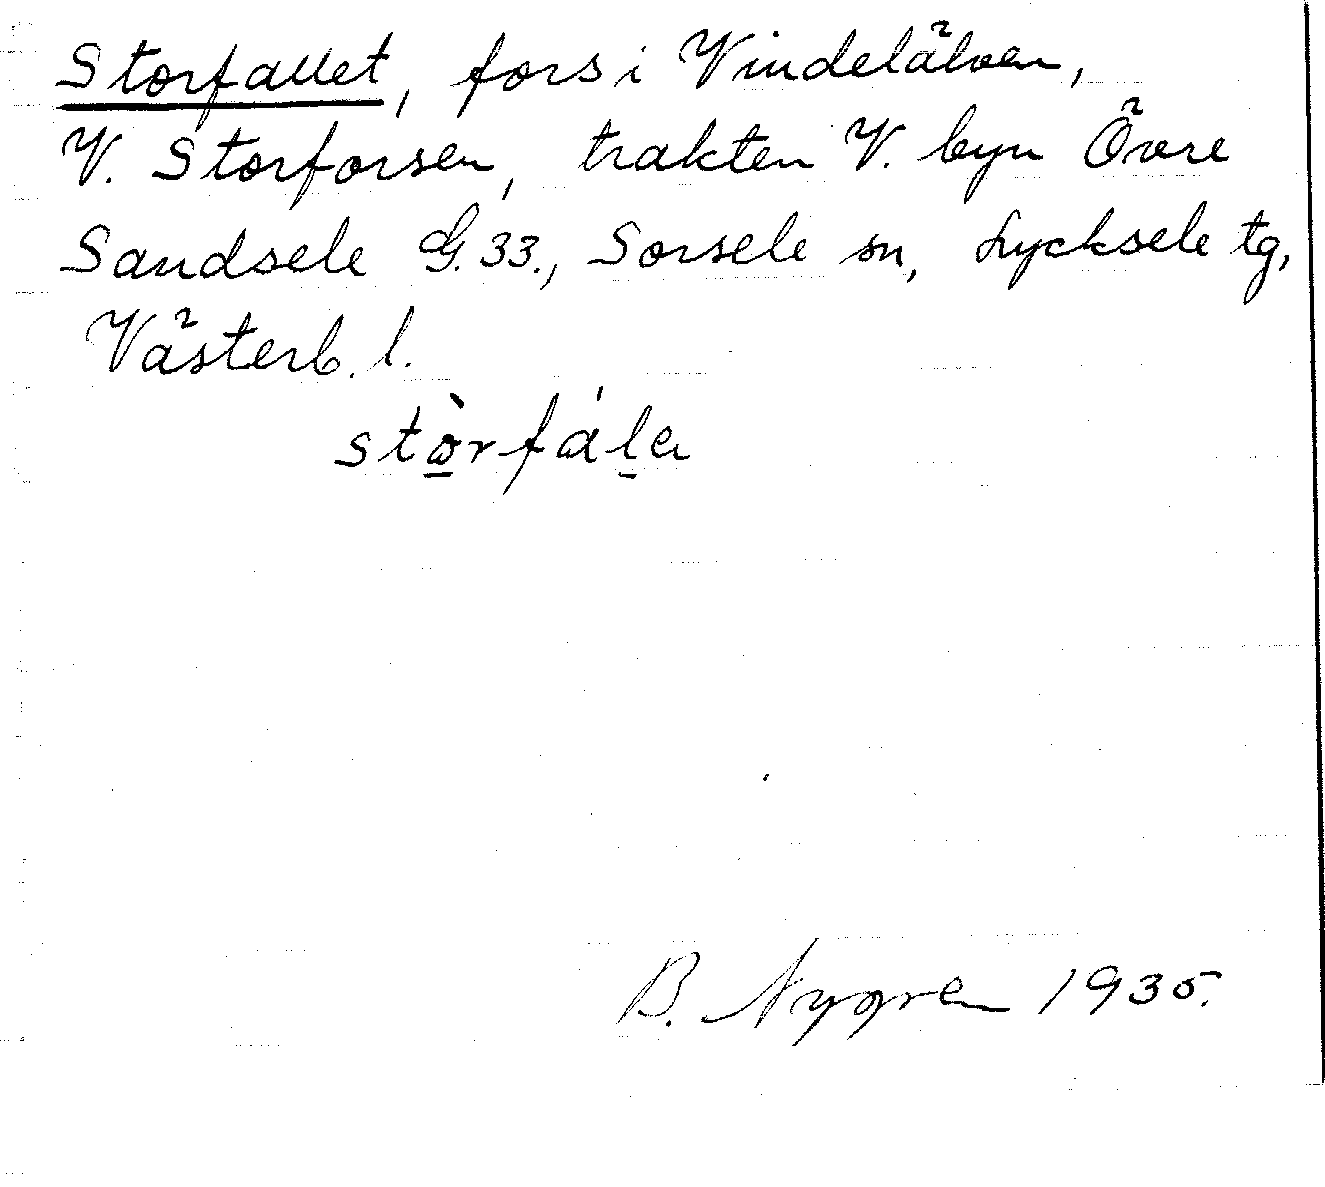 Storfallet, fors i Vindelälven,
V. Storforsen, trakten V. byn Övre
Sandsele G. 33., Sorsele sn, Lycksele tg,
Västerb. l.
stòrfála
B. Nygren 1935.